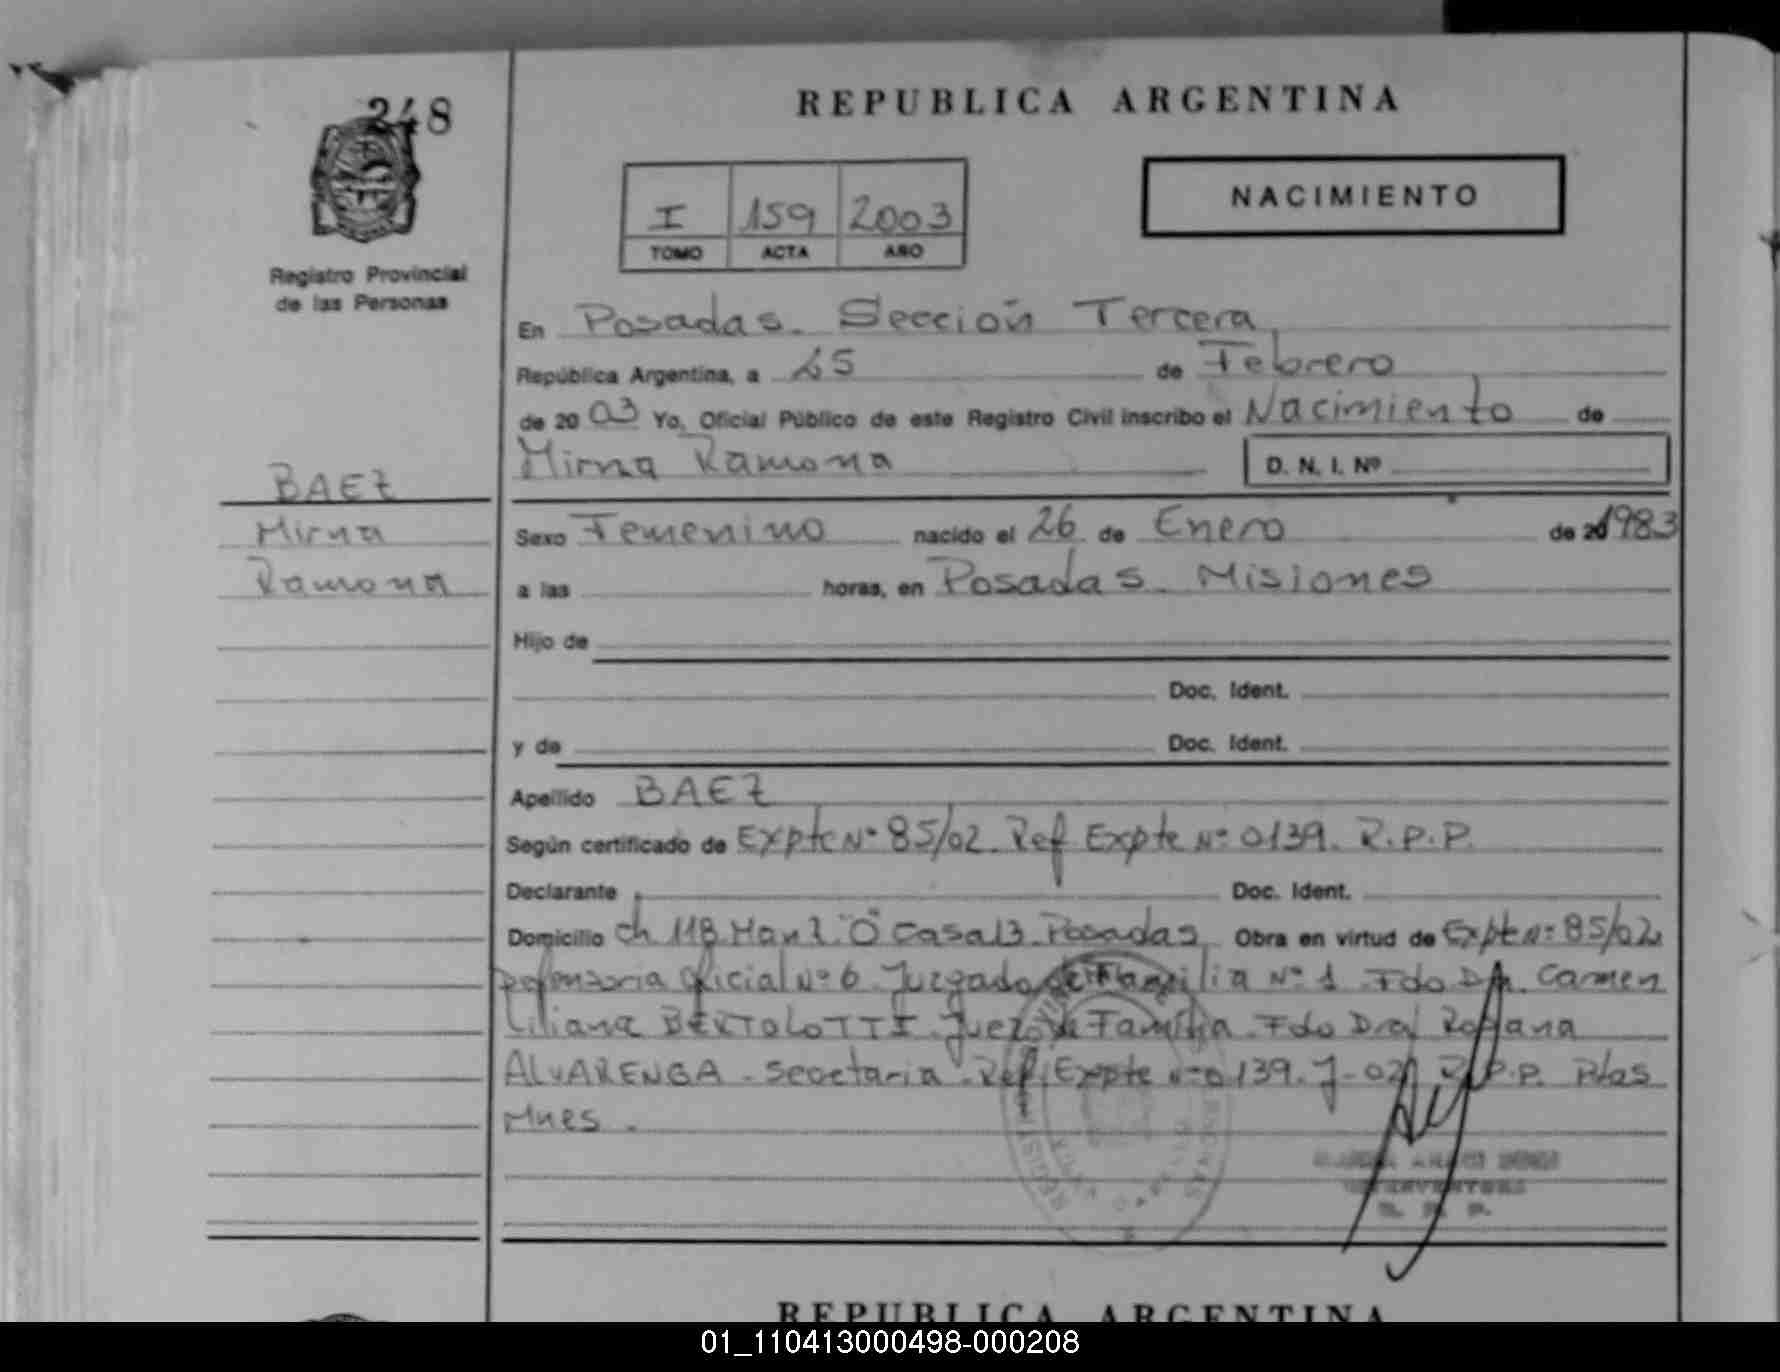 248
REPUBLICA ARGENTINA
NACIMIENTO
I 159 2003
TOMO ACTA AÑO
Registro Provincial
de las Personas
En Posadas. Sección Tercera
República Argentina, a 25 de Febrero
de 2003 Yo, Oficial Público de este Registro Civil inscribo el Nacimiento de
Mirna Ramona D. N. I. Nº
BAEZ
Mirna
Ramona
Sexo Femenino nacido el 26 de Enero de 1983
a las horas, en Posadas. Misiones
Hijo de
Doc. Ident.
y de Doc. Ident.
Apellido BAEZ
Según certificado de Expte Nº 85/02. Ref Expte Nº 0139. R.P.P.
Declarante Doc. Ident.
Domicilio ch 118 Manz "O" Casa 13 Posadas Obra en virtud de Expte Nº 85/02
Defensoria Oficial Nº 6 Juzgado de Familia Nº 1. Fdo Dra. Carmen
Liliana BERTOLOTTI Juez de Familia. Fdo Dra Rosana
ALVARENGA - Secretaria - Ref Expte Nº 0139. J-02 R.P.P. Pdas
Mnes.
R. P. P.
REPUBLICA ARGENTINA
01_110413000498-000208